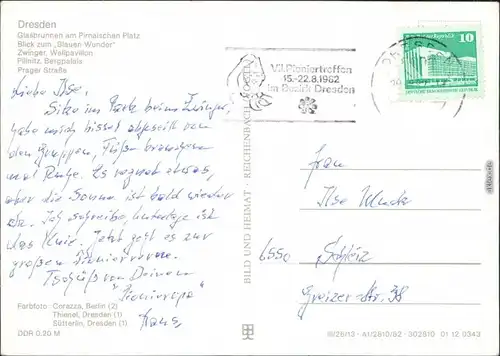 Dresden
Glasbrunnen am Pirnaischen Platz
Blick zum „Blauen Wunder"
Zwinger, Wallpavillon
Pillnitz, Bergpalais
Prager Straße
VII. Pioniertreffen
15.-22.8.1982
im Bezirk Dresden
10
Liebe Ilse.
Sitze im Park beim Zwinger,
habe mich bisset abgeseilt von
den Gruppen, Füße brauchen
mal Ruhe. Es regnet etwas,
aber die Sonne ist bald wieder
da. Ich schreibe, Unterlage ist
das Knie. Jetzt geht es zur
großen Pionier
Tschüß von Deinem
"Pionieropa"
Hans,
Frau
Ilse
6550 Schleiz
Greizer Str. 38
BILD UND HEIMAT · REICHENBACH (VOGTL)
Farbfoto: Corazza, Berlin (2)
Thienel, Dresden (1)
Sütterlin, Dresden (1)
DDR 0.20 M
III/26/13 · A1/2810/82 · 302810 01 12 0343